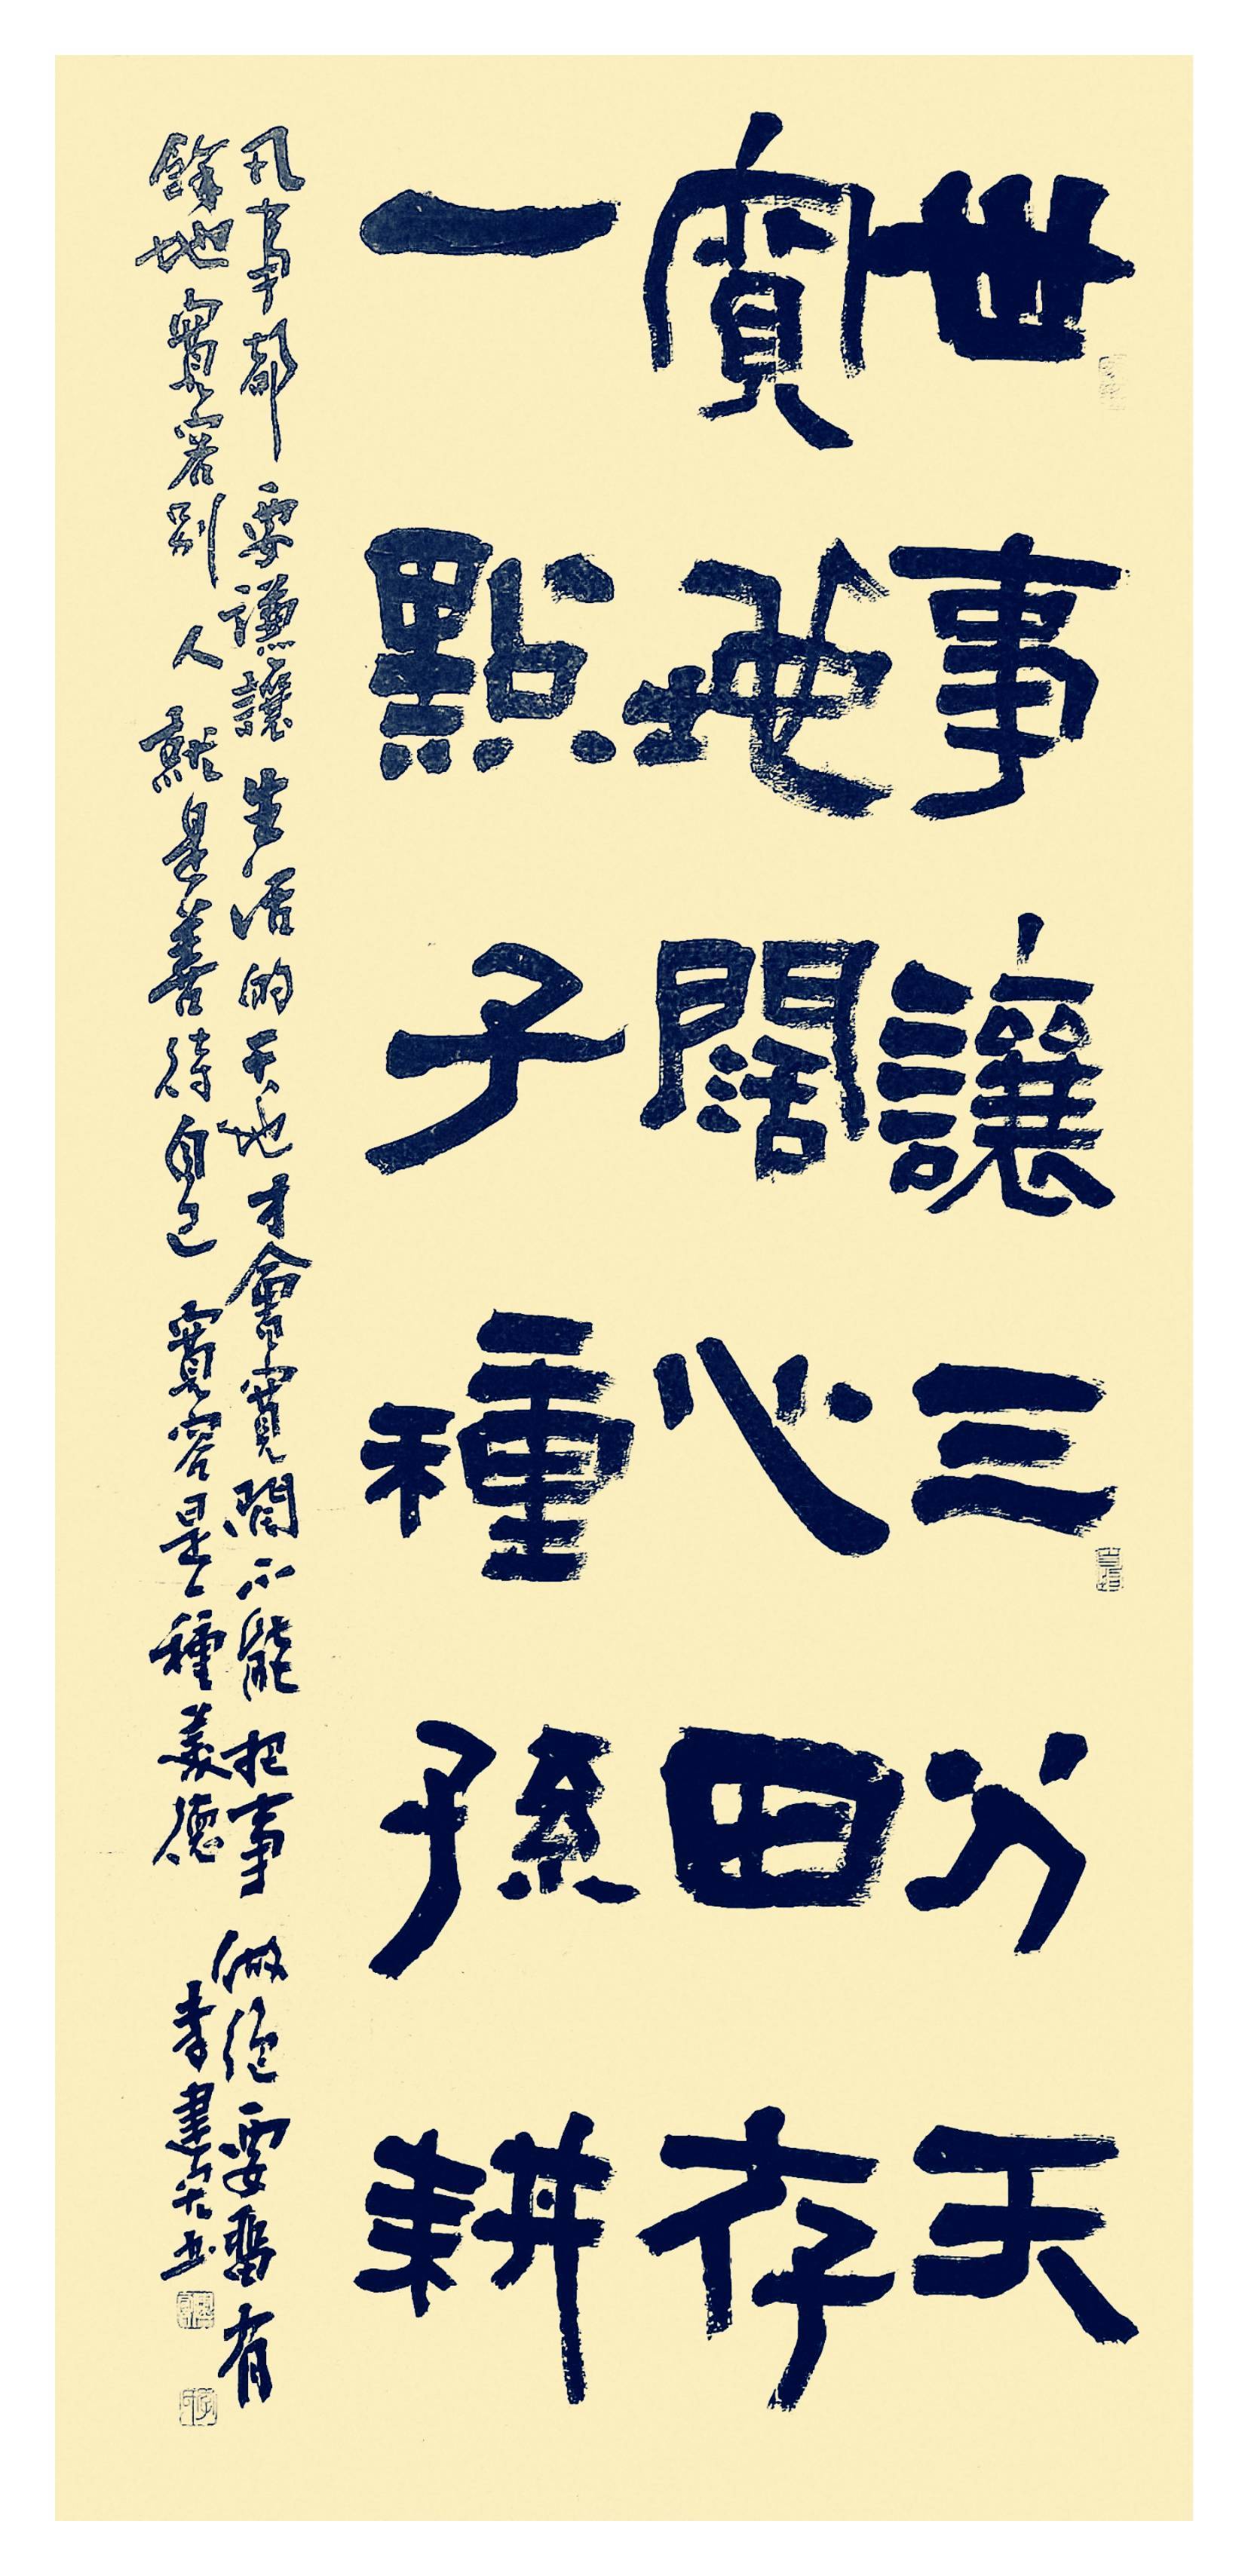 世事讓三分天
寬地闊心田存
一點子種孫耕
凡事都要謙讓生活的天地才會寬闊不能把事做絕要留有
餘地寬容別人就是善待自己寬容是一種美德
李建书